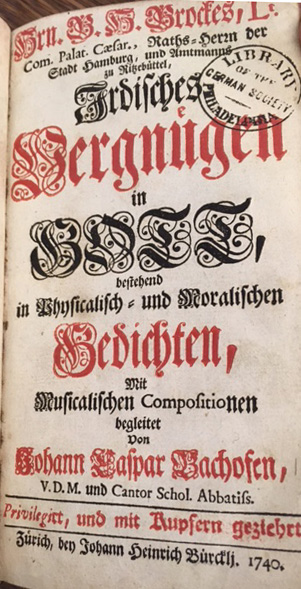 Hrn. B. H. Brockes, Lt.
Com. Palat. Cæsar., Raths-Herrn der
Stadt Hamburg, und Amtmanns
zu Ritzebüttel,
Irdisches
Vergnügen
in
GOTT,
bestehend
in Physicalisch- und Moralischen
Gedichten,
Mit
Musicalischen Compositionen
begleitet
Von
Johann Caspar Bachofen,
V.D.M. und Cantor Schol. Abbatiss.
Privilegirt, und mit Kupfern geziehrt
Zürich, bey Johann Heinrich Bürcklj. 1740.
LIBRARY
OF THE
GERMAN SOCIETY
PHILADELPHIA